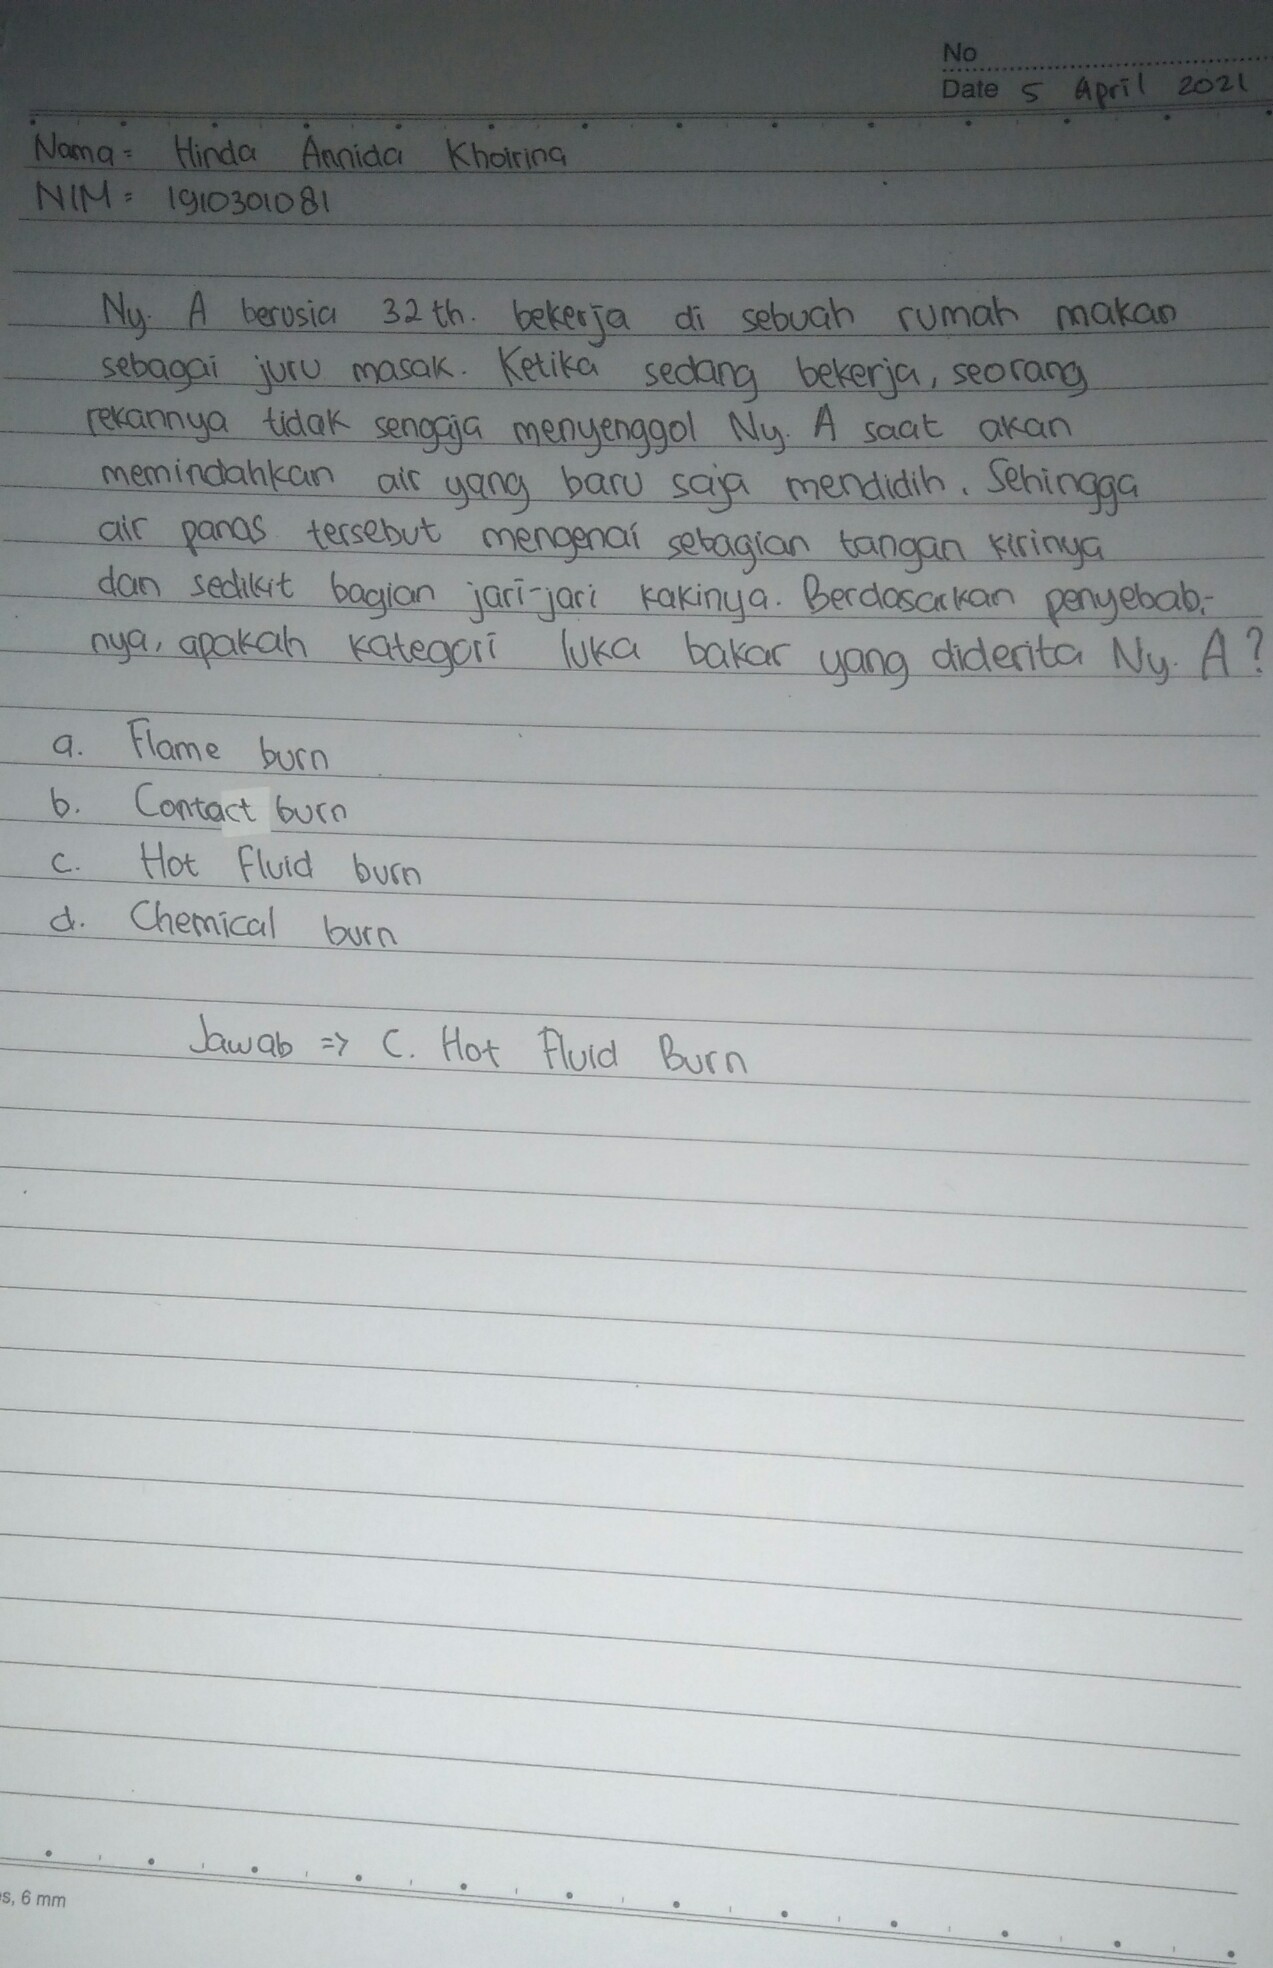 No
Date 5 April 2021
Nama = Hinda Annida Khoirina
NIM = 1910301081
Ny. A berusia 32 th. bekerja di sebuah rumah makan
sebagai juru masak. Ketika sedang bekerja, seorang
rekannya tidak sengaja menyenggol Ny. A saat akan
memindahkan air yang baru saja mendidih. Sehingga
air panas tersebut mengenai sebagian tangan kirinya
dan sedikit bagian jari-jari kakinya. Berdasarkan penyebab-
nya, apakah kategori luka bakar yang diderita Ny. A?
a. Flame burn
b. Contact burn
c. Hot Fluid burn
d. Chemical burn
Jawab => C. Hot Fluid Burn
s, 6 mm